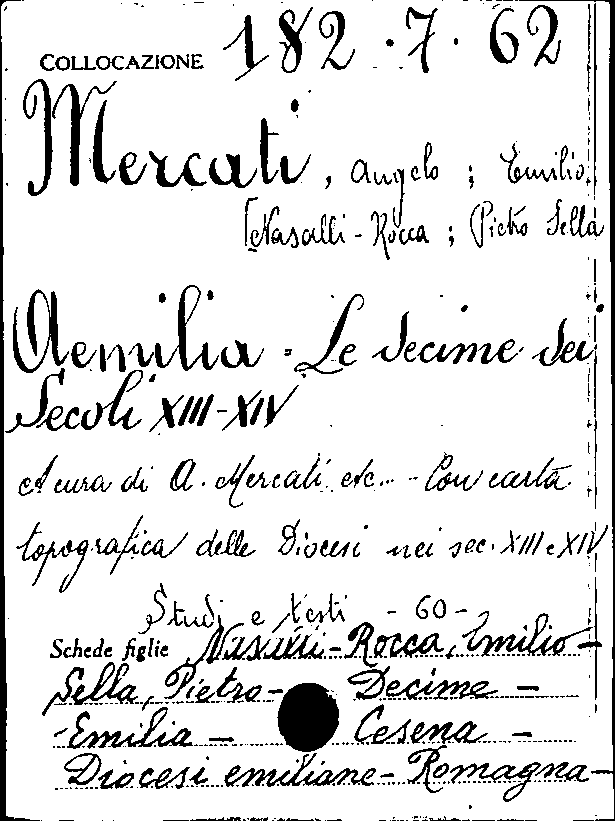 COLLOCAZIONE 182.7.62
Mercati, Angelo ; Emilio
[Nasalli-Rocca ; Pietro Sella
Aemilia - Le decime dei
Secoli XIII-XIV
A cura di A. Mercati etc.. - Con carta
topografica delle Diocesi nei sec. XIII e XIV
Studi e Testi - 60 -
Schede figlie Nasalli-Rocca, Emilio -
Sella, Pietro - Decime -
-Emilia - Cesena -
Diocesi emiliane - Romagna -